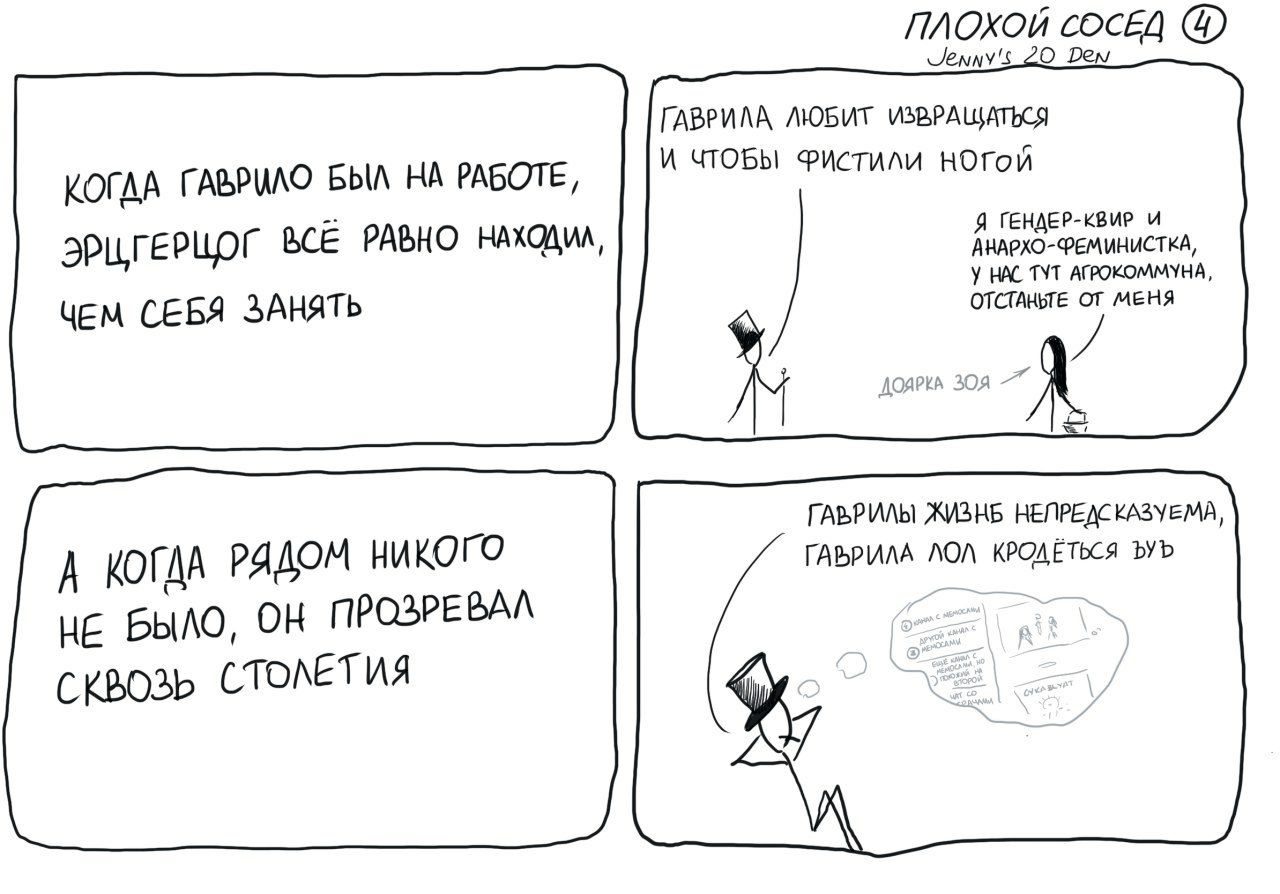 ПЛОХОЙ СОСЕД 4
Jenny's 20 Den
КОГДА ГАВРИЛО БЫЛ НА РАБОТЕ,
ЭРЦГЕРЦОГ ВСЁ РАВНО НАХОДИЛ,
ЧЕМ СЕБЯ ЗАНЯТЬ
ГАВРИЛА ЛЮБИТ ИЗВРАЩАТЬСЯ
И ЧТОБЫ ФИСТИЛИ НОГОЙ
Я ГЕНДЕР-КВИР И
АНАРХО-ФЕМИНИСТКА,
У НАС ТУТ АГРОКОММУНА,
ОТСТАНЬТЕ ОТ МЕНЯ
ДОЯРКА ЗОЯ
А КОГДА РЯДОМ НИКОГО
НЕ БЫЛО, ОН ПРОЗРЕВАЛ
СКВОЗЬ СТОЛЕТИЯ
ГАВРИЛЫ ЖИЗНБ НЕПРЕДСКАЗУЕМА,
ГАВРИЛА ЛОЛ КРОДЁТЬСЯ ЪУЪ
КАНАЛ С МЕМОСАМИ
ДРУГОЙ КАНАЛ С
МЕМОСАМИ
ЕЩЁ КАНАЛ С
МЕМОСАМИ, НО
ПОХОЖИЙ НА
ВТОРОЙ
ЧАТ СО